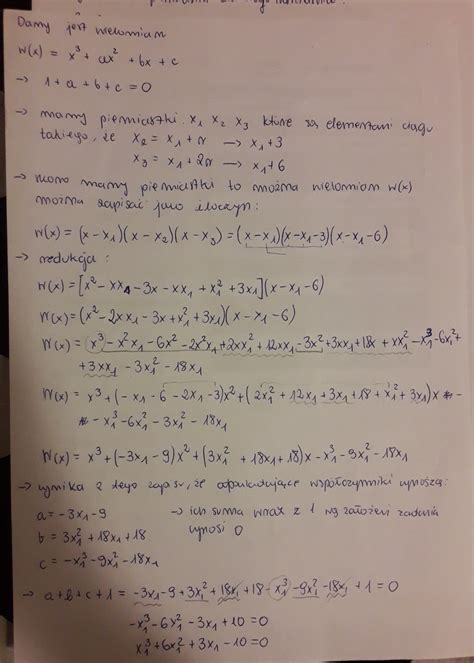 Dany jest wielomian
W(x) = x³ + ax² + bx + c
→ 1 + a + b + c = 0
→ mamy pierwiastki x₁ x₂ x₃ które są elementami ciągu
takiego, że x₂ = x₁ + r → x₁+3
x₃ = x₁ + 2r → x₁+6
→ skoro mamy pierwiastki to można wielomian W(x)
można zapisać jako iloczyn:
W(x) = (x-x₁)(x-x₂)(x-x₃) = (x-x₁)(x-x₁-3)(x-x₁-6)
→ redukcja:
W(x) = [x² - xx₁ - 3x - xx₁ + x₁² + 3x₁](x-x₁-6)
W(x) = (x² - 2xx₁ - 3x + x₁² + 3x₁)(x - x₁ - 6)
W(x) = x³ - x²x₁ - 6x² - 2x²x₁ + 2xx₁² + 12xx₁ - 3x² + 3xx₁ + 18x + xx₁² - x₁³ - 6x₁² +
+ 3xx₁ - 3x₁² - 18x₁
W(x) = x³ + (-x₁ - 6 - 2x₁ - 3)x² + (2x₁² + 12x₁ + 3x₁ + 18 + x₁² + 3x₁)x -
- x₁³ - 6x₁² - 3x₁² - 18x₁
W(x) = x³ + (-3x₁ - 9)x² + (3x₁² + 18x₁ + 18)x - x₁³ - 9x₁² - 18x₁
→ wynika z tego zapisu, że odpowiadające współczynniki wynoszą:
a = -3x₁ - 9 → ich suma wraz z 1 wg założeń zadania
b = 3x₁² + 18x₁ + 18 wynosi 0
c = -x₁³ - 9x₁² - 18x₁
→ a+b+c+1 = -3x₁ - 9 + 3x₁² + 18x₁ + 18 - x₁³ - 9x₁² - 18x₁ + 1 = 0
-x₁³ - 6x₁² - 3x₁ + 10 = 0
x₁³ + 6x₁² + 3x₁ - 10 = 0